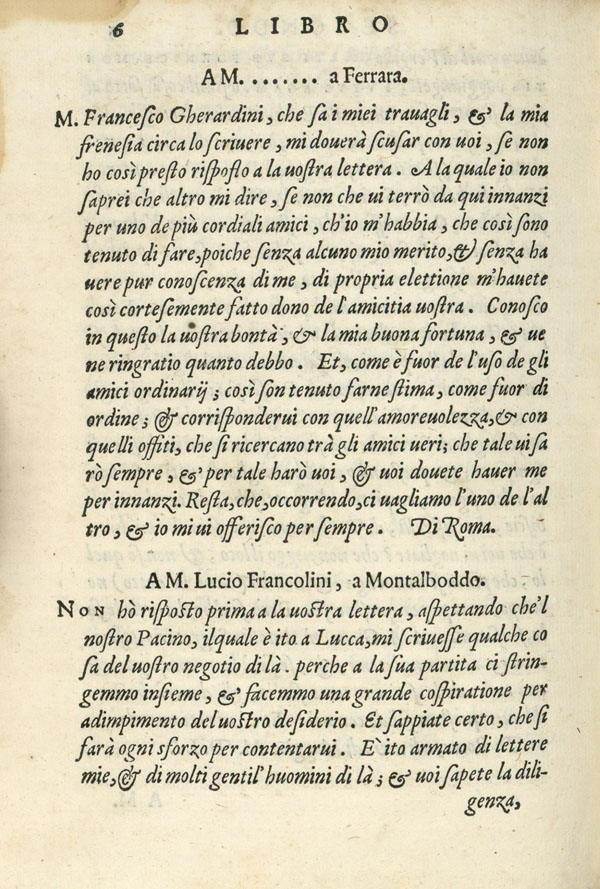 6 LIBRO
A M. ........ a Ferrara.
M. Francesco Gherardini, che sa i miei trauagli, & la mia
frenesia circa lo scriuere, mi douerà scusar con uoi, se non
ho così presto risposto a la uostra lettera. A la quale io non
saprei che altro mi dire, se non che ui terrò da qui innanzi
per uno de più cordiali amici, ch'io m'habbia, che così sono
tenuto di fare, poiche senza alcuno mio merito, & senza ha
uere pur conoscenza di me, di propria elettione m'hauete
così cortesemente fatto dono de l'amicitia uostra. Conosco
in questo la uostra bontà, & la mia buona fortuna, & ue
ne ringratio quanto debbo. Et, come è fuor de l'uso de gli
amici ordinarij; così son tenuto farne stima, come fuor di
ordine; & corrisponderui con quell'amoreuolezza, & con
quelli offiti, che si ricercano trà gli amici ueri; che tale ui sa
rò sempre, & per tale harò uoi, & uoi douete hauer me
per innanzi. Resta, che, occorrendo, ci uagliamo l'uno de l'al
tro, & io mi ui offerisco per sempre. Di Roma.
A M. Lucio Francolini, a Montalboddo.
NON hò risposto prima a la uostra lettera, aspettando che'l
nostro Pacino, ilquale è ito a Lucca, mi scriuesse qualche co
sa del uostro negotio di là. perche a la sùa partita ci strin-
gemmo insieme, & facemmo una grande cospiratione per
adimpimento del uostro desiderio. Et sappiate certo, che si
farà ogni sforzo per contentarui. E' ito armato di lettere
mie, & di molti gentil'huomini di là; & uoi sapete la dili-
genza,